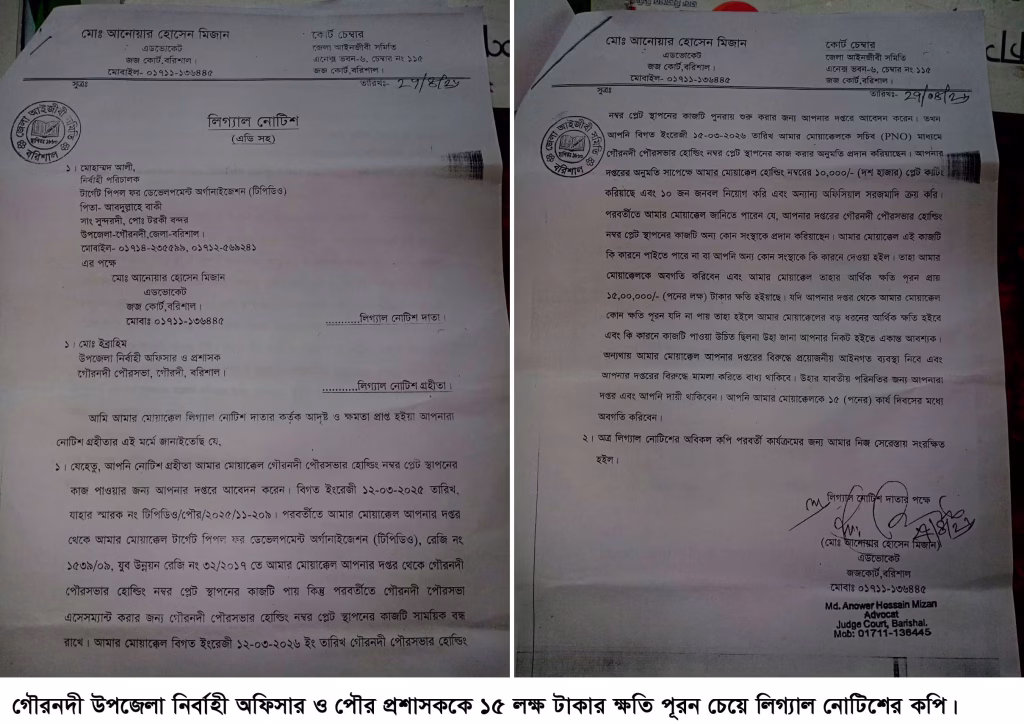 মোঃ আনোয়ার হোসেন মিজান
এডভোকেট
জজ কোর্ট,বরিশাল।
মোবাইল- ০১৭১১-১৩৬৪৪৫
কোর্ট চেম্বার
জেলা আইনজীবী সমিতি
এনেক্স ভবন-৬, চেম্বার নং ১১৫
জজ কোর্ট,বরিশাল।
সুত্রঃ
তারিখঃ- ২৭/৪/২৬
জেলা আইনজীবী সমিতি
বরিশাল
লিগ্যাল নোটিশ
(এডি সহ)
১। মোহাম্মদ আলী,
নির্বাহী পরিচালক
টার্গেট পিপল ফর ডেভেলপমেন্ট অর্গানাইজেশন (টিপিডিও)
পিতা- আবদুল্লাহে বাকী
সাং সুন্দরদী, পোঃ টরকী বন্দর
উপজেলা-গৌরনদী,জেলা-বরিশাল।
মোবাইল- ০১৭১৪-২৩৫৫৯৯, ০১৭১২-৫৬৯২৪১
এর পক্ষে
মোঃ আনোয়ার হোসেন মিজান
এডভোকেট
জজ কোর্ট,বরিশাল।
মোবাঃ ০১৭১১-১৩৬৪৪৫
...........লিগ্যাল নোটিশ দাতা।
১। মোঃ ইব্রাহিম
উপজেলা নির্বাহী অফিসার ও প্রশাসক
গৌরনদী পৌরসভা, গৌরদী, বরিশাল।
...........লিগ্যাল নোটিশ গ্রহীতা।
আমি আমার মোয়াক্কেল লিগ্যাল নোটিশ দাতার কর্তৃক আদৃষ্ট ও ক্ষমতা প্রাপ্ত হইয়া আপনারা
নোটিশ গ্রহীতার এই মর্মে জানাইতেছি যে,
১। যেহেতু, আপনি নোটিশ গ্রহীতা আমার মোয়াক্কেল গৌরনদী পৌরসভার হোল্ডিং নম্বর প্লেট স্থাপনের
কাজ পাওয়ার জন্য আপনার দপ্তরে আবেদন করেন। বিগত ইংরেজী ১২-০৩-২০২৫ তারিখ,
যাহার স্মারক নং টিপিডিও/পৌর/২০২৫/১১-২০৯। পরবর্তীতে আমার মোয়াক্কেল আপনার দপ্তর
থেকে আমার মোয়াক্কেল টার্গেট পিপল ফর ডেভেলপমেন্ট অর্গানাইজেশন (টিপিডিও), রেজি নং
১৫৩৯/০৯, যুব উন্নয়ন রেজি নং ৩২/২০১৭ তে আমার মোয়াক্কেল আপনার দপ্তর থেকে গৌরনদী
পৌরসভার হোল্ডিং নম্বর প্লেট স্থাপনের কাজটি পায় কিন্তু পরবর্তীতে গৌরনদী পৌরসভা
এসেসম্যান্ট করার জন্য গৌরনদী পৌরসভার হোল্ডিং নম্বর প্লেট স্থাপনের কাজটি সাময়িক বন্ধ
রাখে। আমার মোয়াক্কেল বিগত ইংরেজী ১২-০৩-২০২৬ ইং তারিখ গৌরনদী পৌরসভার হোল্ডিং
মোঃ আনোয়ার হোসেন মিজান
এডভোকেট
জজ কোর্ট,বরিশাল।
মোবাইল- ০১৭১১-১৩৬৪৪৫
কোর্ট চেম্বার
জেলা আইনজীবী সমিতি
এনেক্স ভবন-৬, চেম্বার নং ১১৫
জজ কোর্ট,বরিশাল।
সুত্রঃ
তারিখঃ- ২৭/০৪/২৬
জেলা আইনজীবী সমিতি
বরিশাল
নম্বর প্লেট স্থাপনের কাজটি পুনরায় শুরু করার জন্য আপনার দপ্তরে আবেদন করেন। তখন
আপনি বিগত ইংরেজী ১৫-০৩-২০২৬ তারিখ আমার মোয়াক্কেলকে সচিব (PNO) মাধ্যমে
গৌরনদী পৌরসভার হোল্ডিং নম্বর প্লেট স্থাপনের কাজ করার অনুমতি প্রদান করিয়াছেন। আপনার
দপ্তরের অনুমতি সাপেক্ষে আমার মোয়াক্কেল হোল্ডিং নম্বরের ১০,০০০/- (দশ হাজার) প্লেট কাটিং
করিয়াছে এবং ১০ জন জনবল নিয়োগ করি এবং অন্যান্য অফিসিয়াল সরজমাদি ক্রয় করি।
পরবর্তীতে আমার মোয়াক্কেল জানিতে পারেন যে, আপনার দপ্তরের গৌরনদী পৌরসভার হোল্ডিং
নম্বর প্লেট স্থাপনের কাজটি অন্য কোন সংস্থাকে প্রদান করিয়াছেন। আমার মোয়াক্কেল এই কাজটি
কি কারনে পাইতে পারে না যা আপনি অন্য কোন সংস্থাকে কি কারনে দেওয়া হইল। তাহা আমার
মোয়াক্কেলকে অবগতি করিবেন এবং আমার মোয়াক্কেল তাহার আর্থিক ক্ষতি পূরন প্রায়
১৫,০০,০০০/- (পনের লক্ষ) টাকার ক্ষতি হইয়াছে। যদি আপনার দপ্তর থেকে আমার মোয়াক্কেল
কোন ক্ষতি পূরন যদি না পায় তাহা হইলে আমার মোয়াক্কেলের বড় ধরনের আর্থিক ক্ষতি হইবে
এবং কি কারনে কাজটি পাওয়া উচিত ছিলনা উহা জানা আপনার নিকট হইতে একান্ত আবশ্যক।
অন্যথায় আমার মোয়াক্কেল আপনার দপ্তরের বিরুদ্ধে প্রয়োজনীয় আইনগত ব্যবস্থা নিবে এবং
আপনার দপ্তরের বিরুদ্ধে মামলা করিতে বাধ্য থাকিবে। উহার যাবতীয় পরিনতির জন্য আপনারা
দপ্তর এবং আপনি দায়ী থাকিবেন। আপনি আমার মোয়াক্কেলকে ১৫ (পনের) কার্য দিবসের মধ্যে
অবগতি করিবেন।
২। অত্র লিগ্যাল নোটিশের অবিকল কপি পরবর্তী কার্যক্রমের জন্য আমার নিজ সেরেস্তায় সংরক্ষিত
হইল।
লিগ্যাল নোটিশ দাতার পক্ষে
(মোঃ আনোয়ার হোসেন মিজান)
এডভোকেট
জজকোর্ট,বরিশাল
মোবাঃ ০১৭১১-১৩৬৪৪৫
Md. Anower Hossain Mizan
Advocat
Judge Court, Barishal.
Mob: 01711-136445
গৌরনদী উপজেলা নির্বাহী অফিসার ও পৌর প্রশাসককে ১৫ লক্ষ টাকার ক্ষতি পূরন চেয়ে লিগ্যাল নোটিশের কপি।